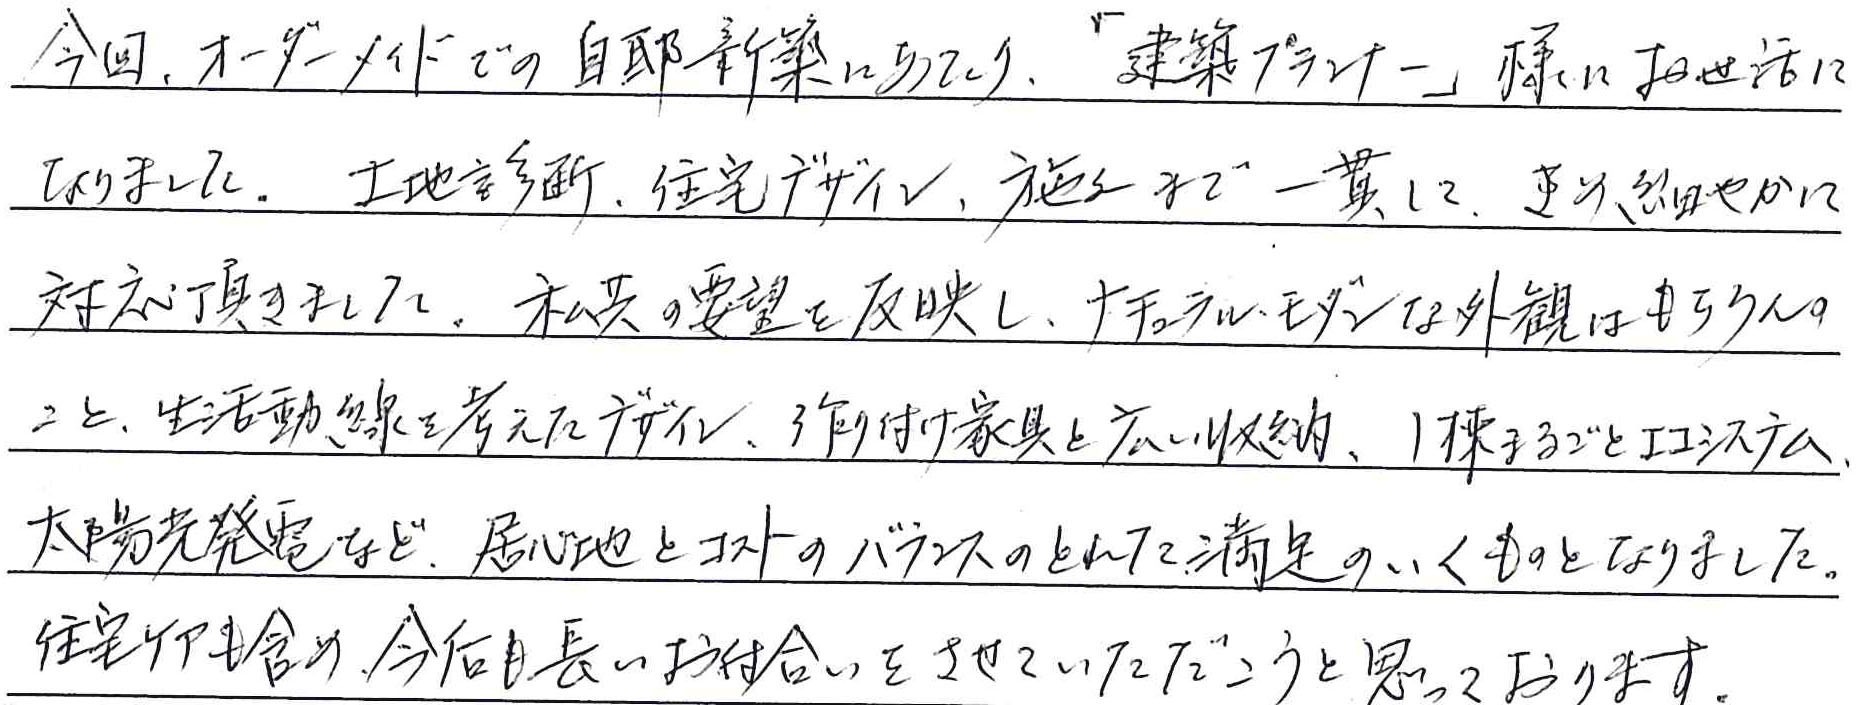 今回、オーダーメイドでの自邸新築にあたり、「建築プランナー」様にお世話に
なりました。 土地診断、住宅デザイン、施工まで一貫して、きめ細やかに
対応頂きました。私共の要望を反映し、ナチュラル・モダンな外観はもちろんの
こと、生活動線を考えたデザイン、作り付け家具と広い収納、1棟まるごとエコシステム、
太陽光発電など、居心地とコストのバランスのとれた満足のいくものとなりました。
住宅ケアも含め、今后も長いお付合いをさせていただこうと思っております。